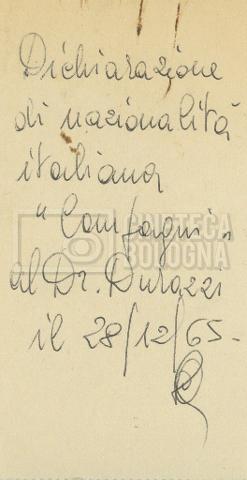 Dichiarazione
di nazionalità
italiana
"Compagni"
al Dr. Durazzi
il 28/12/65-
CINETECA
BOLOGNA